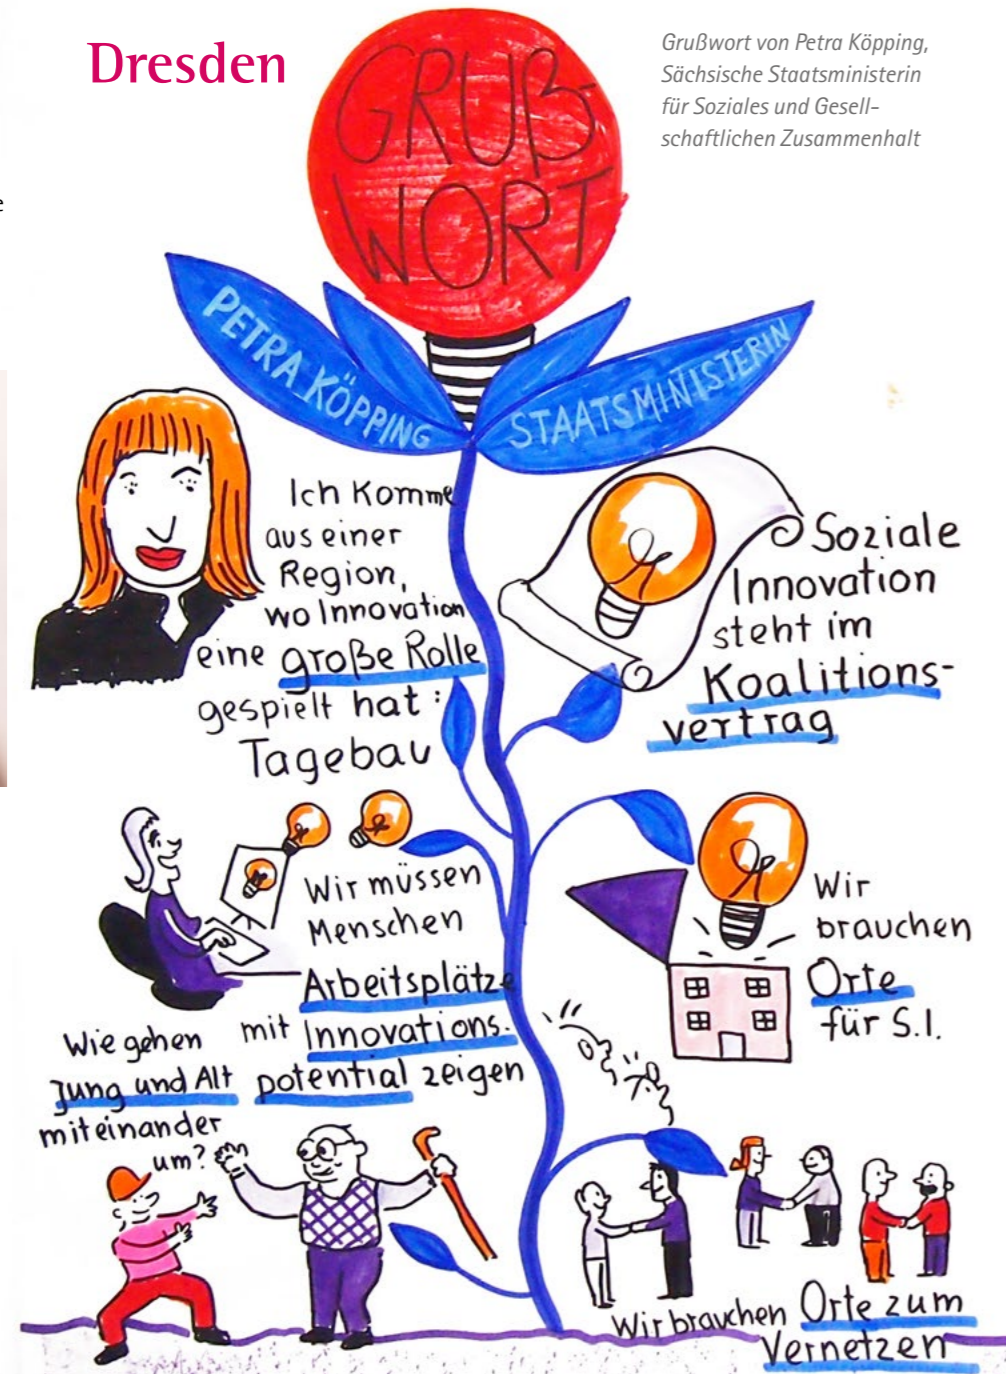 Dresden
Grußwort von Petra Köpping,
Sächsische Staatsministerin
für Soziales und Gesell-
schaftlichen Zusammenhalt
GRUß-
WORT
PETRA KÖPPING
STAATSMINISTERIN
Ich komme
aus einer
Region,
wo Innovation
eine große Rolle
gespielt hat:
Tagebau
Soziale
Innovation
steht im
Koalitions-
vertrag
Wir müssen
Menschen
Arbeitsplätze
mit Innovations-
potential zeigen
Wir
brauchen
Orte
für S.I.
Wie gehen
Jung und Alt
miteinander
um?
Wir brauchen Orte zum
Vernetzen